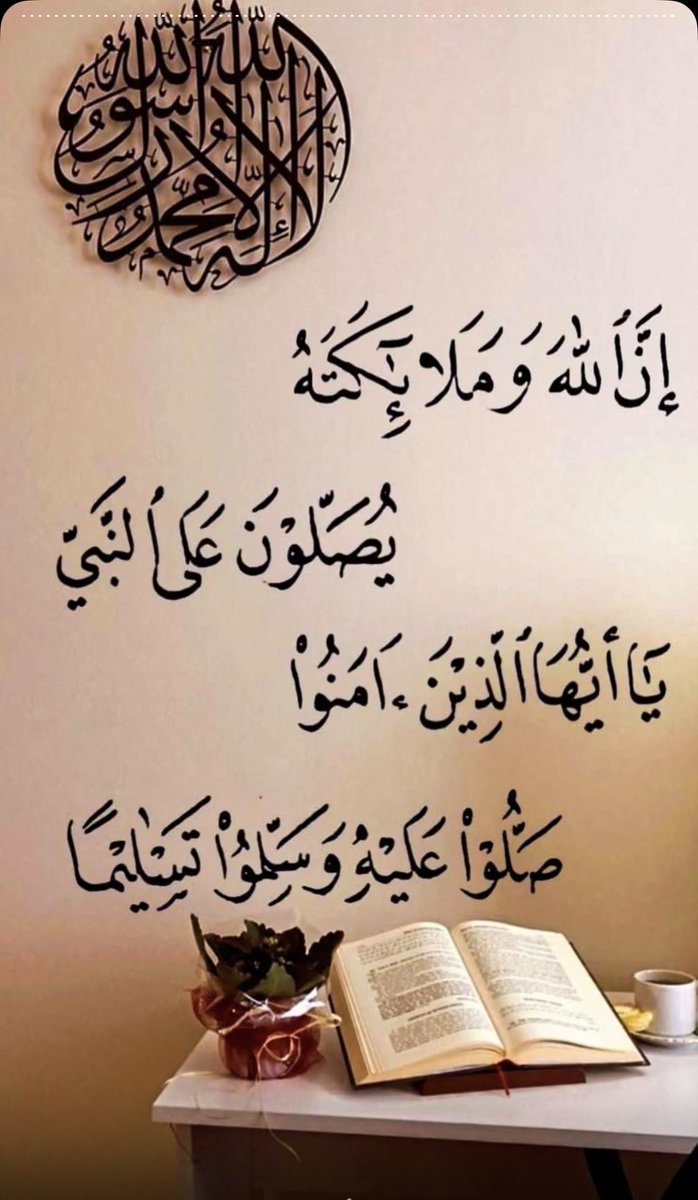 لا إله إلا الله محمد رسول الله
إِنَّ ٱللَّهَ وَمَلَائِكَتَهُ
يُصَلُّوْنَ عَلَى ٱلنَّبَيِّ
يَٰٓا أَيُّهَا ٱلَّذِيْنَ ءَامَنُوْا
صَلُّوْا عَلَيْهِ وَسَلِّمُوْا تَسْلِيْمًا